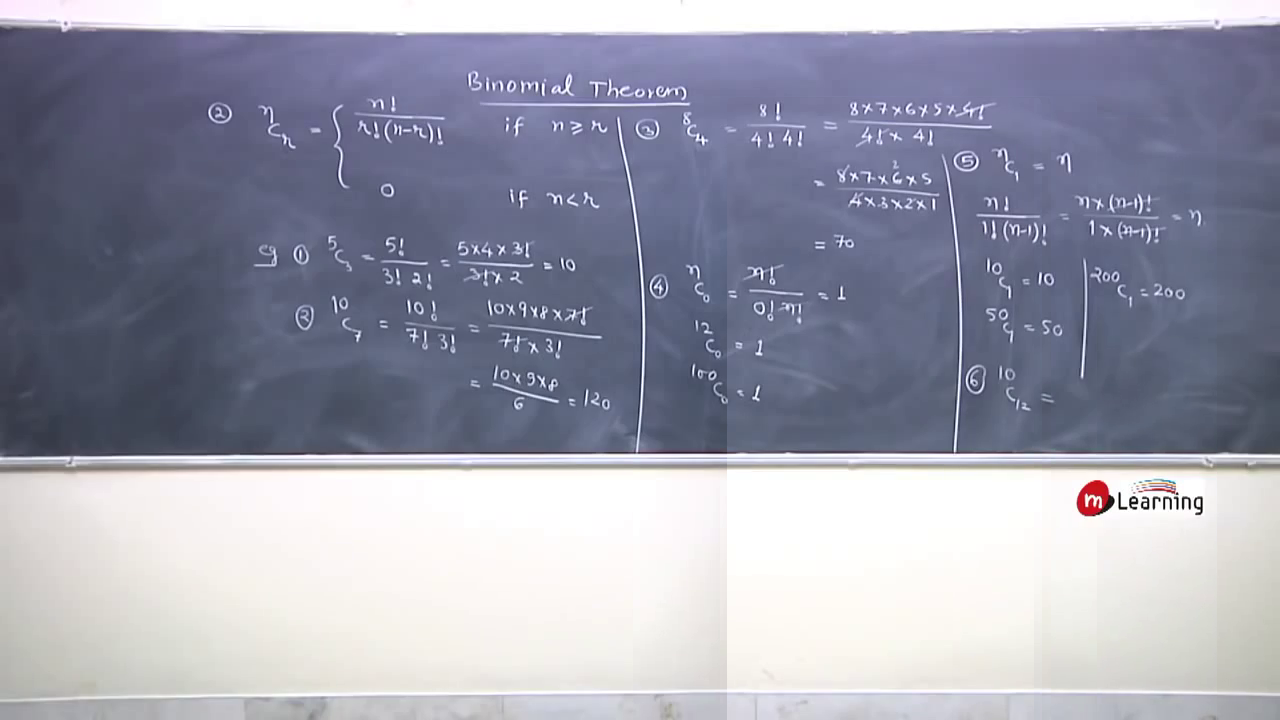 Binomial Theorem
② ⁿCᵣ = { n! / r!(n-r)! if n ≥ r
0 if n < r
Eg ① ⁵C₃ = 5! / 3! 2! = 5×4×3! / 3!×2 = 10
② ¹⁰C₇ = 10! / 7! 3! = 10×9×8×7! / 7!×3!
= 10×9×8 / 6 = 120
③ ⁸C₄ = 8! / 4! 4! = 8×7×6×5×4! / 4!×4!
= 8×7×6×5 / 4×3×2×1
2
= 70
④ ⁿC₀ = n! / 0! n! = 1
¹²C₀ = 1
¹⁰⁰C₀ = 1
⑤ ⁿC₁ = n
n! / 1!(n-1)! = n×(n-1)! / 1×(n-1)! = n
¹⁰C₁ = 10
⁵⁰C₁ = 50
²⁰⁰C₁ = 200
⑥ ¹⁰C₁₂ =
m Learning